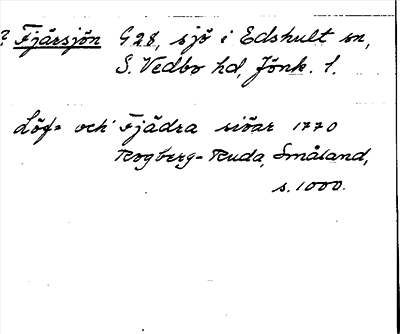 ? Fjärsjön G 28, sjö i Edshult sn,
S. Vedbo hd, Jönk. l.
Löf= och Fjädra siöar 1770
Rogberg-Ruda, Småland,
s. 1000.